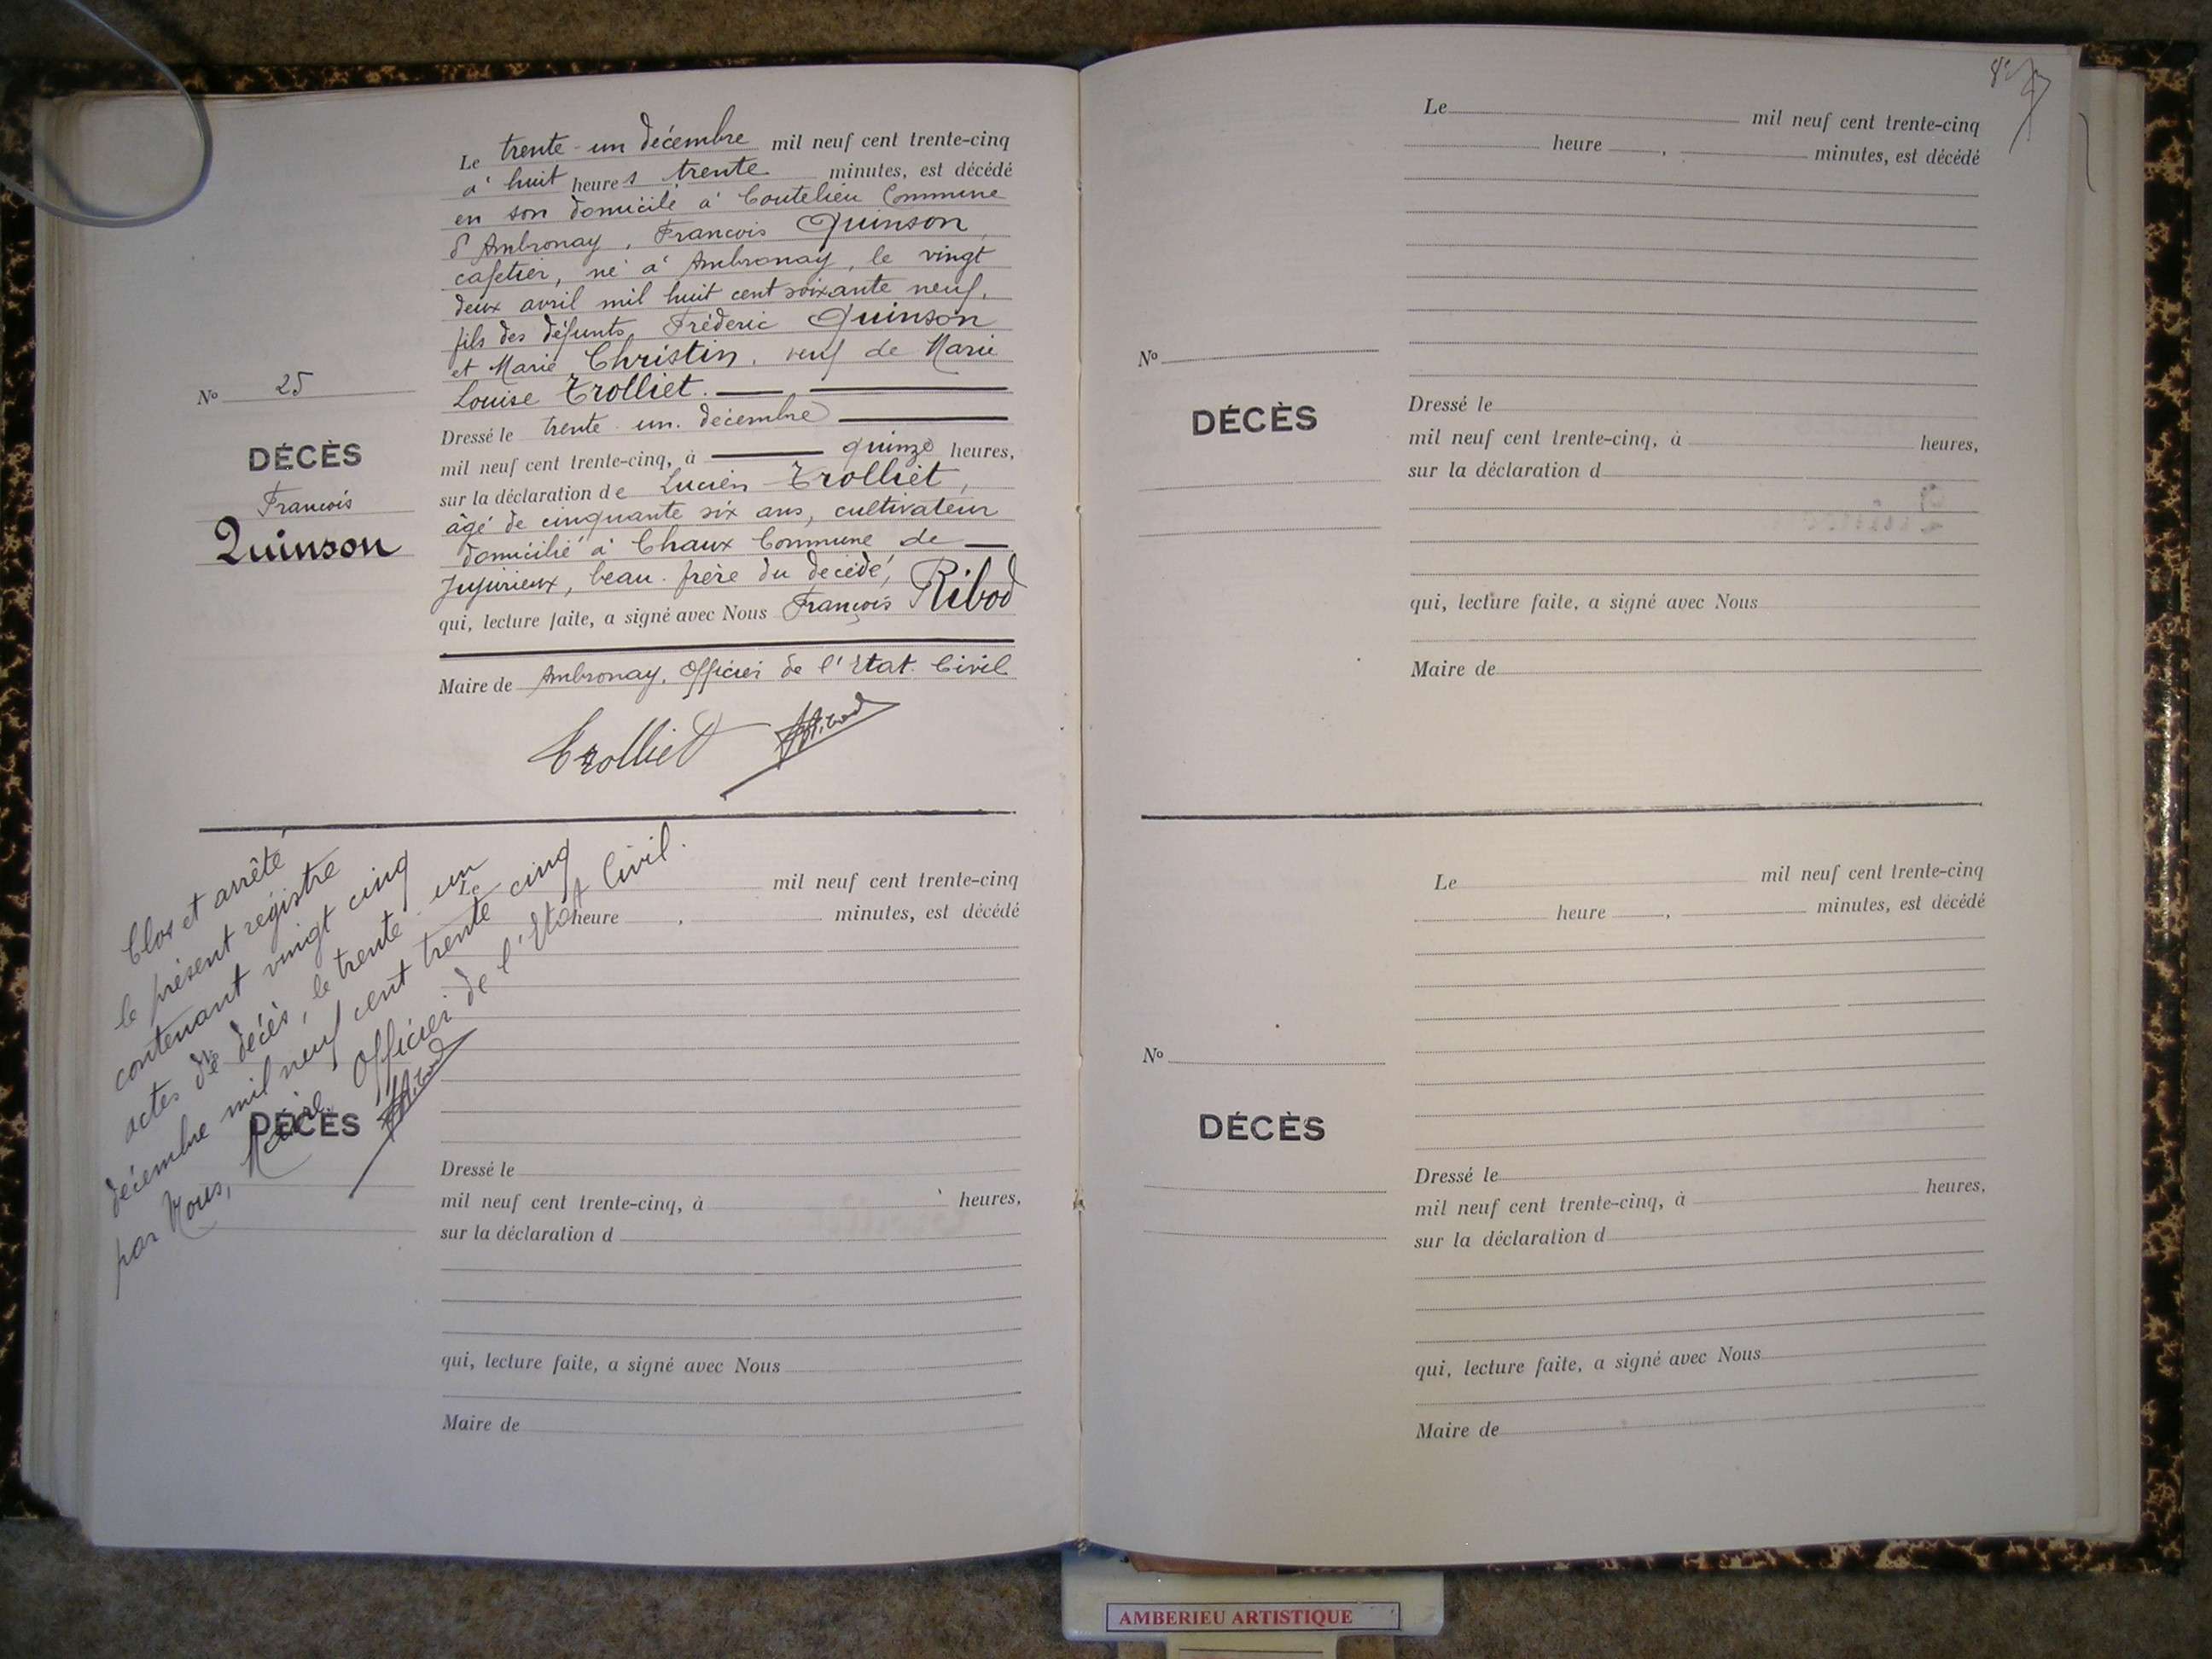 Le trente-un décembre mil neuf cent trente-cinq
à huit heures trente minutes, est décédé
en son domicile à Coutelieu Commune
d'Ambronay, François Quinson,
cafetier, né à Ambronay, le vingt
deux avril mil huit cent soixante neuf,
fils des défunts, Fréderic Quinson
et Marie Christin, veuf de Marie
Louise Trolliet.
Nº 25
DÉCÈS
François
Quinson
Dressé le trente-un décembre
mil neuf cent trente-cinq, à quinze heures,
sur la déclaration de Lucien Trolliet,
âgé de cinquante six ans, cultivateur
domicilié à Chaux Commune de
Jujurieux, beau-frère du décédé,
qui, lecture faite, a signé avec Nous François Ribod
Maire de Ambronay, Officier de l'Etat-Civil
Trolliet Ribod
Clos et arrêté
le présent registre
contenant vingt cinq
actes de décès, le trente-un
décembre mil neuf cent trente cinq
par Nous, Maire, Officier de l'Etat Civil.
Ribod
Le mil neuf cent trente-cinq
heure , minutes, est décédé
Nº
DÉCÈS
Dressé le
mil neuf cent trente-cinq, à heures,
sur la déclaration d
qui, lecture faite, a signé avec Nous
Maire de
Le mil neuf cent trente-cinq
heure , minutes, est décédé
Nº
DÉCÈS
Dressé le
mil neuf cent trente-cinq, à heures,
sur la déclaration d
qui, lecture faite, a signé avec Nous
Maire de
Le mil neuf cent trente-cinq
heure , minutes, est décédé
Nº
DÉCÈS
Dressé le
mil neuf cent trente-cinq, à heures,
sur la déclaration d
qui, lecture faite, a signé avec Nous
Maire de
AMBERIEU ARTISTIQUE